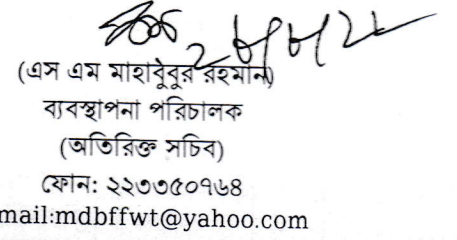 (এস এম মাহাবুবুর রহমান)
ব্যবস্থাপনা পরিচালক
(অতিরিক্ত সচিব)
ফোন: ২২৩৩৫০৭৬৪
mail:mdbffwt@yahoo.com